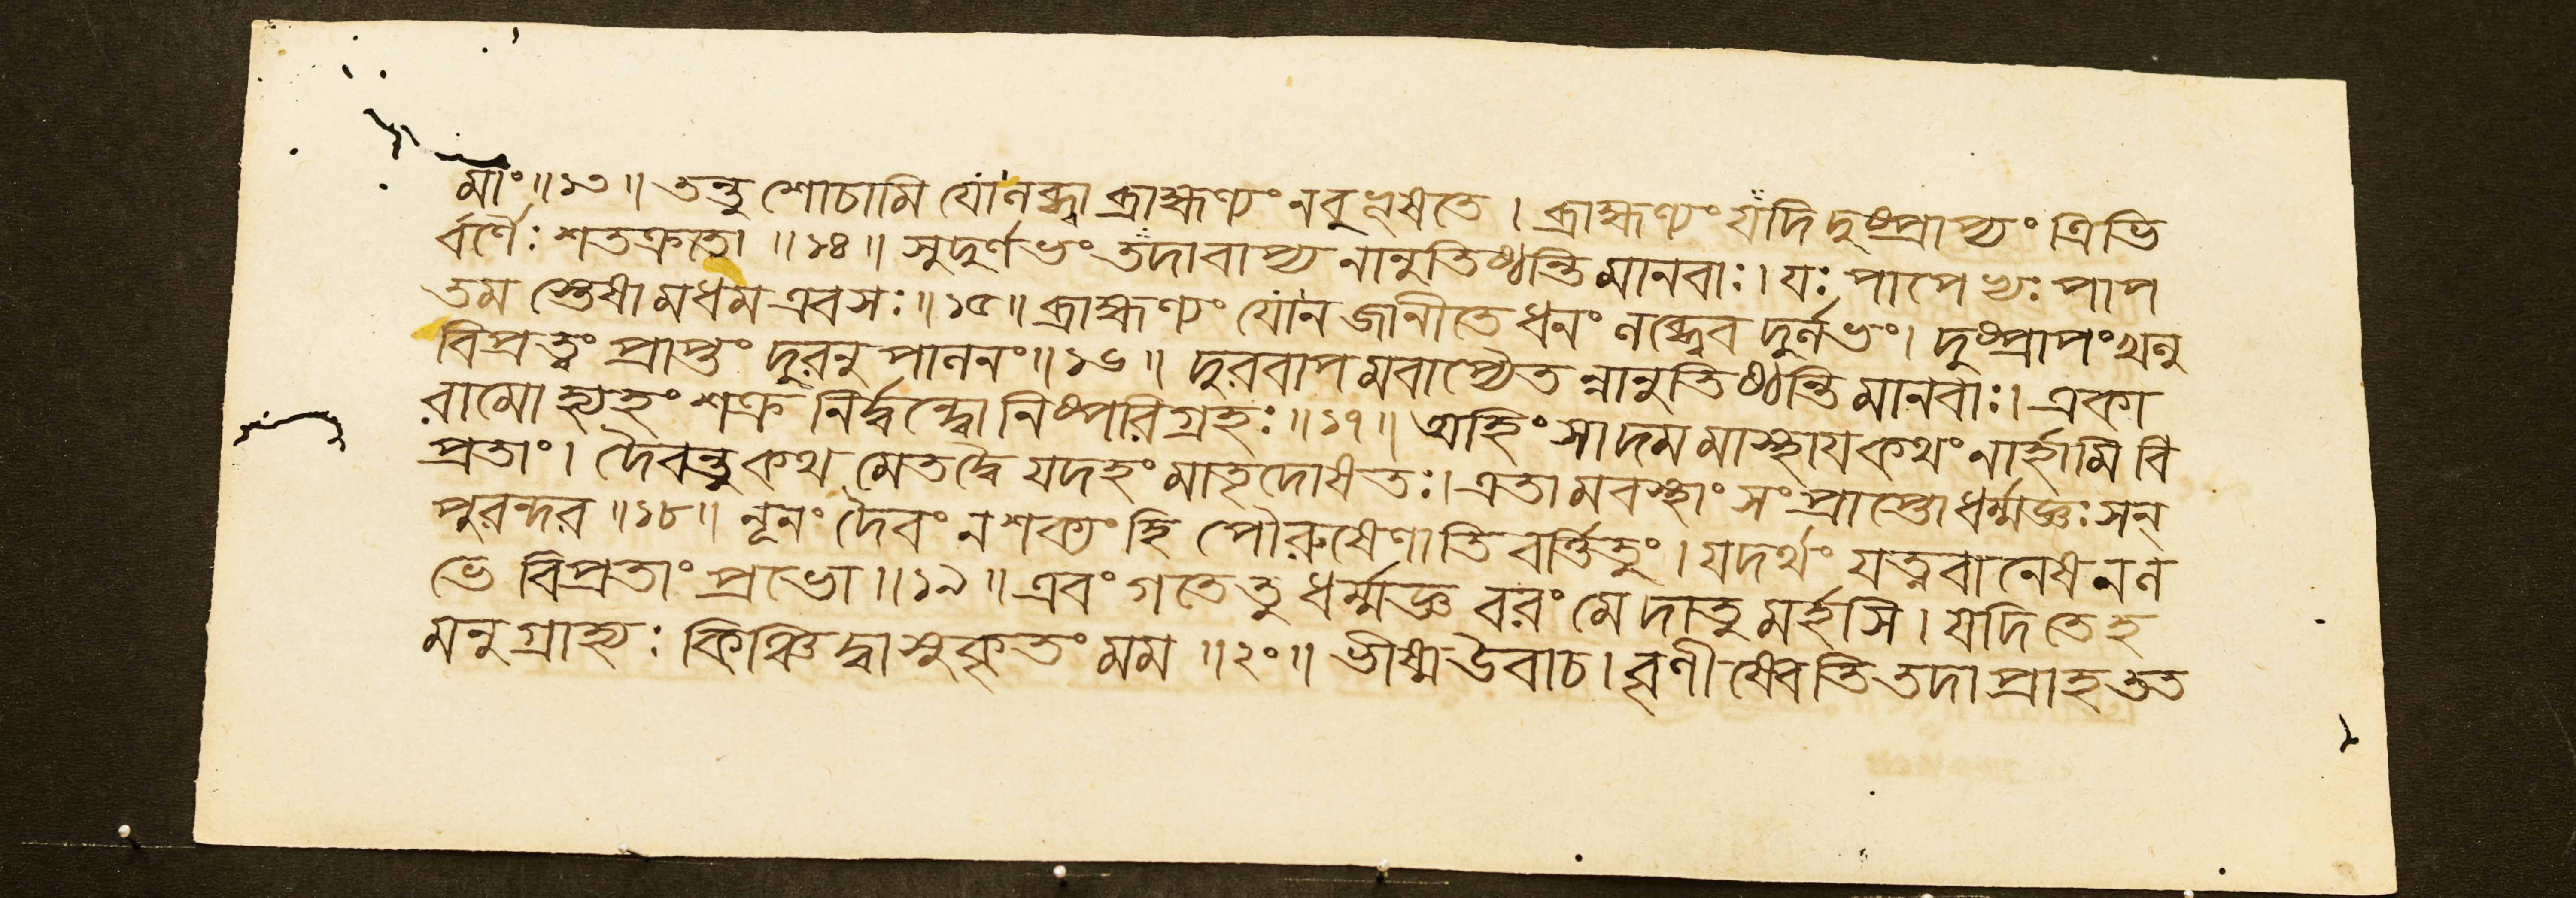 মাং॥১৩॥ তন্তু শোচামি যোনব্ধ্বা ব্রাহ্মণ্যং নবুভূষতে। ব্রাহ্মণ্যং যদি দুষ্প্রাপ্যং ত্রিভি
র্বর্ণৈঃ শতক্রতো ॥১৪॥ সুদুর্লভং তদাবাপ্য নানুতিষ্ঠন্তি মানবাঃ। যঃ পাপেভ্যঃ পাপ
তম স্তেষামধম এবসঃ॥১৫॥ ব্রাহ্মণ্যং যোন জানীতে ধনং লব্ধ্বেব দুর্লভং। দুষ্প্রাপং খলু
বিপ্রত্বং প্রাপ্তং দুরনুপালনং॥১৬॥ দুরবাপমবাপ্যৈত ন্নানুতিষ্ঠন্তি মানবাঃ। একা
রামো হ্যহং শক্র নির্দ্বন্দ্বো নিষ্পরিগ্রহঃ॥১৭॥ অহিংসাদমমাস্থায কথং নার্হামি বি
প্রতাং। দৈবন্তু কথমেতদ্বৈ যদহং মাতৃদোষতঃ। এতামবস্থাং সংপ্রাপ্তো ধর্ম্মজ্ঞঃ সন্
পুরন্দর॥১৮॥ নূনং দৈবং নশক্যং হি পৌরুষেণাতিবর্ত্তিতুং। যদর্থং যত্নবানেষ নল
ভে বিপ্রতাং প্রভো॥১৯॥ এবং গতেতু ধর্ম্মজ্ঞ বরং মে দাতুমর্হসি। যদি তেহ
মনুগ্রাহ্যঃ কিঞ্চিদ্বা সুকৃতং মম॥২০॥ ভীষ্মউবাচ। বৃণীষ্বেতি তদা প্রাহ তত